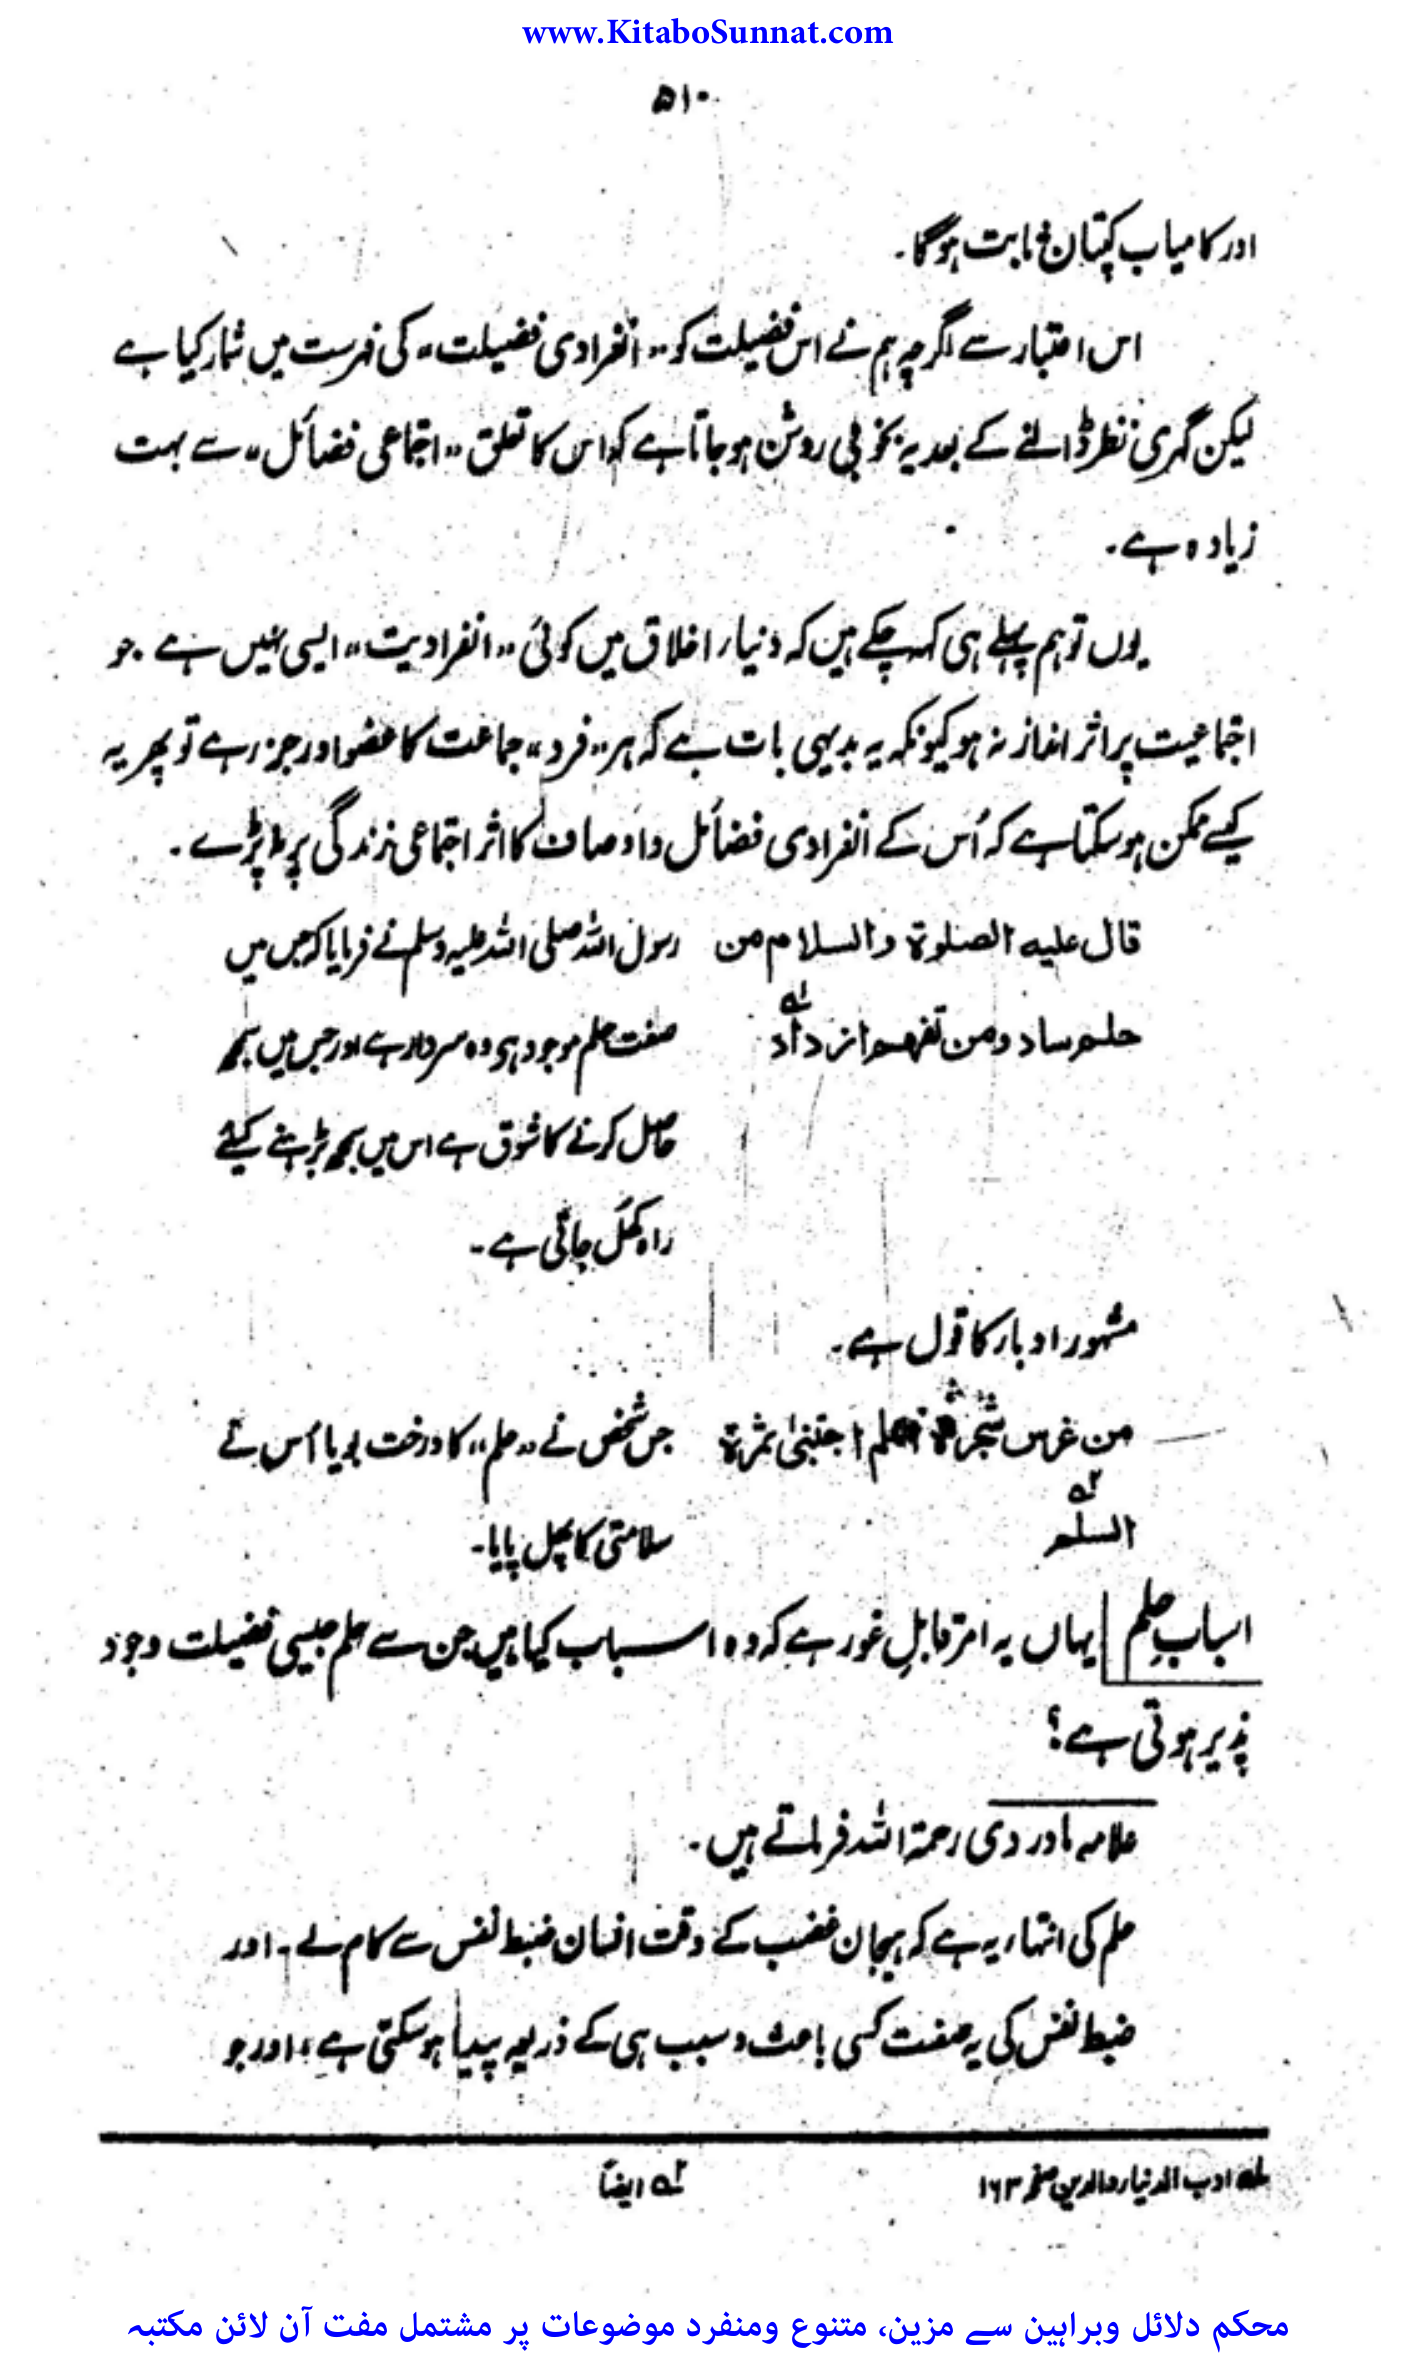 www.KitaboSunnat.com
۵۱۰
اور کامیاب کپتان ثابت ہوگا۔
اس اعتبار سے اگرچہ ہم نے اس فضیلت کو "انفرادی فضیلت" کی فہرست میں شمار کیا ہے
لیکن گہری نظر ڈالنے کے بعد یہ بخوبی روشن ہو جاتا ہے کہ اس کا تعلق "اجتماعی فضائل" سے بہت
زیادہ ہے۔
یوں تو ہم پہلے ہی کہہ چکے ہیں کہ دنیاء اخلاق میں کوئی "انفرادیت" ایسی نہیں ہے جو
اجتماعیت پر اثر انداز نہ ہو کیونکہ یہ بدیہی بات ہے کہ ہر "فرد" جماعت کا عضو اور جزء ہے تو پھر یہ
کیسے ممکن ہو سکتا ہے کہ اُس کے انفرادی فضائل و اوصاف کا اثر اجتماعی زندگی پر نہ پڑے۔
قال علیہ الصلوۃ والسلام من رسول اللہ صلی اللہ علیہ وسلم نے فرمایا کہ جس میں
حلم ساد ومن تفھم ازداد ۱؎ صفت حلم موجود ہی وہ سردار ہے اور جس میں سمجھ
حاصل کرنے کا شوق ہے اس میں سمجھ بڑہنے کیلئے
راہ کھُل جاتی ہے۔
مشہور ادباء کا قول ہے۔
من غرس شجرۃ الحلم اجتنیٰ ثمرۃ جس شخص نے "حلم" کا درخت بویا اُس نے
السلم ۲؎ سلامتی کا پھل پایا۔
اسبابِ حلم یہاں یہ امر قابلِ غور ہے کہ وہ اسباب کیا ہیں جن سے حلم جیسی فضیلت وجود
پذیر ہوتی ہے؟
علامہ ماوردی رحمۃ اللہ فرماتے ہیں۔
حلم کی انتہاء یہ ہے کہ ہیجان غضب کے وقت انسان ضبط نفس سے کام لے۔ اور
ضبط نفس کی یہ صفت کسی باعث و سبب ہی کے ذریعہ پیدا ہو سکتی ہے، اور جو
۱؎ ادب الدنیا والدین صفحہ ۱۶۳ ۲؎ ایضاً
محکم دلائل وبراہین سے مزین، متنوع ومنفرد موضوعات پر مشتمل مفت آن لائن مکتبہ